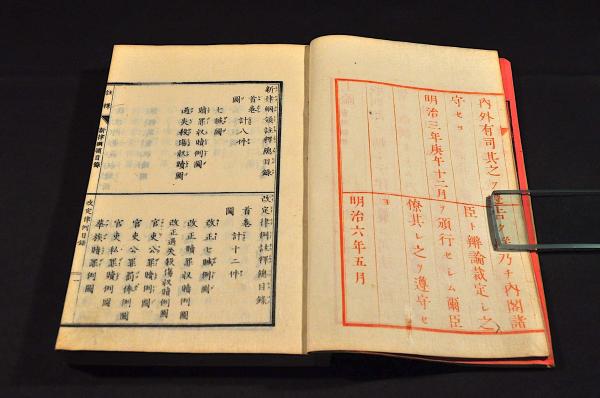 內外有司其之ヲ遵
守セヨ
明治三年庚午十二月
乃チ內閣諸
臣ト辯論裁定シ之
ヲ頒行セシム爾臣
僚其レ之ヲ遵守セ
ヨ
明治六年五月
新律綱領註釋總目錄
首卷 計八件
圖
七贓圖
贖罪收贖例圖
過失殺傷收贖圖
改定律例註釋總目錄
首卷 計十二件
圖
改正七贓圖
改正贖罪收贖例圖
改正過失殺傷收贖例圖
官吏公罪贖例圖
官吏公罪罰俸例圖
官吏私罪贖例圖
華族贖罪例圖
註釋 新律綱領目錄 改定律例目錄 一